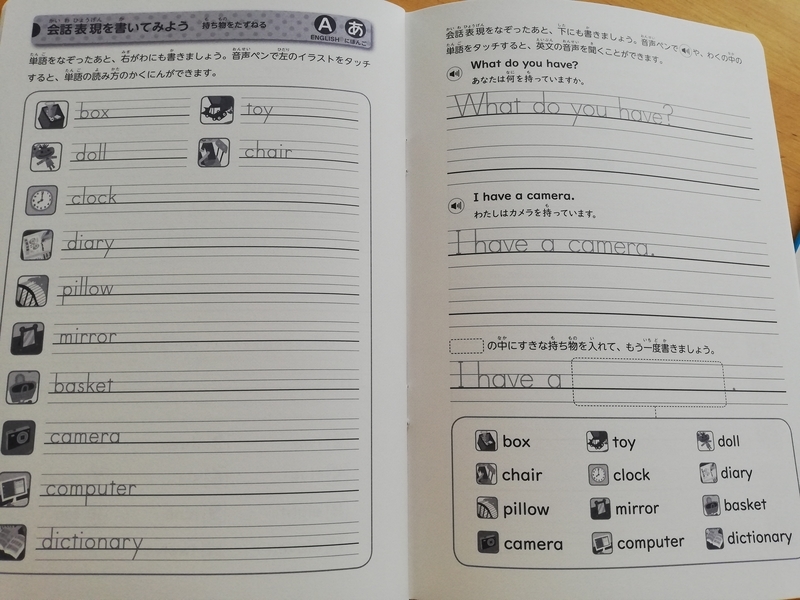 会話表現を書いてみよう 持ち物をたずねる
A あ
ENGLISH にほんご
単語をなぞったあと、右がわにも書きましょう。音声ペンで左のイラストをタッチ
すると、単語の読み方のかくにんができます。
box toy
doll chair
clock
diary
pillow
mirror
basket
camera
computer
dictionary
会話表現をなぞったあと、下にも書きましょう。音声ペンで や、わくの中の
単語をタッチすると、英文の音声を聞くことができます。
What do you have?
あなたは何を持っていますか。
What do you have?
I have a camera.
わたしはカメラを持っています。
I have a camera.
の中にすきな持ち物を入れて、もう一度書きましょう。
I have a .
box toy doll
chair clock diary
pillow mirror basket
camera computer dictionary